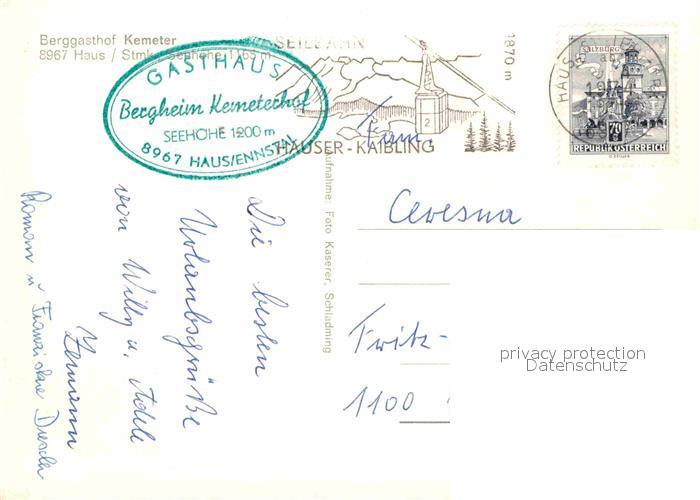 Berggasthof Kemeter
8967 Haus / Stmk., Seehöhe 1165 m
GASTHAUS
Bergheim Kemeterhof
SEEHÖHE 1200 m
8967 HAUS/ENNSTAL
SEILBAHN
1870 m
2
HAUSER-KAIBLING
HAUS
SALZBURG
70 g
REPUBLIK ÖSTERREICH
Aufnahme: Foto Kaserer, Schladming
Die besten
Urlaubsgrüße
von Willy u. Adele
Zemann
Roman u Franziska Drescher
Fam.
Fritz-
1100
privacy protection
Datenschutz